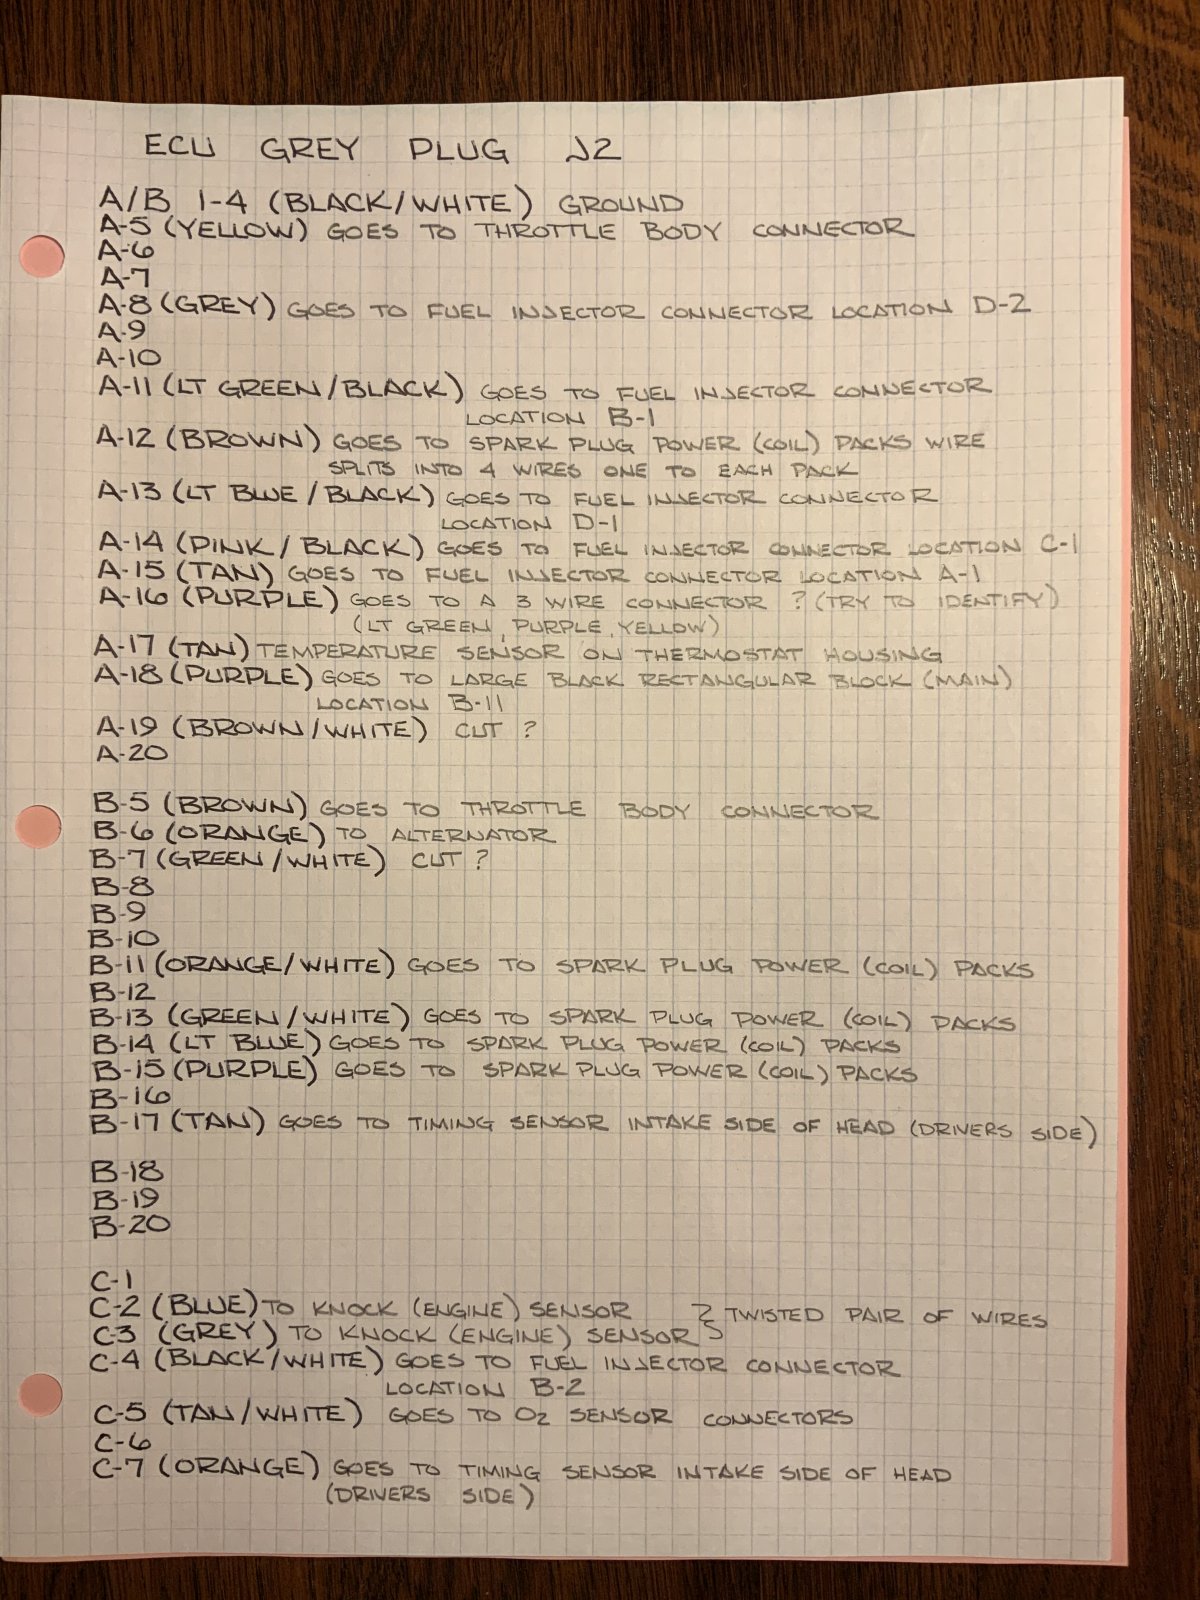 ECU GREY PLUG J2
A/B 1-4 (BLACK/WHITE) GROUND
A-5 (YELLOW) GOES TO THROTTLE BODY CONNECTOR
A-6
A-7
A-8 (GREY) GOES TO FUEL INJECTOR CONNECTOR LOCATION D-2
A-9
A-10
A-11 (LT GREEN/BLACK) GOES TO FUEL INJECTOR CONNECTOR
LOCATION B-1
A-12 (BROWN) GOES TO SPARK PLUG POWER (COIL) PACKS WIRE
SPLITS INTO 4 WIRES ONE TO EACH PACK
A-13 (LT BLUE/BLACK) GOES TO FUEL INJECTOR CONNECTOR
LOCATION D-1
A-14 (PINK/BLACK) GOES TO FUEL INJECTOR CONNECTOR LOCATION C-1
A-15 (TAN) GOES TO FUEL INJECTOR CONNECTOR LOCATION A-1
A-16 (PURPLE) GOES TO A 3 WIRE CONNECTOR ? (TRY TO IDENTIFY)
(LT GREEN, PURPLE, YELLOW)
A-17 (TAN) TEMPERATURE SENSOR ON THERMOSTAT HOUSING
A-18 (PURPLE) GOES TO LARGE BLACK RECTANGULAR BLOCK (MAIN)
LOCATION B-11
A-19 (BROWN/WHITE) CUT ?
A-20
B-5 (BROWN) GOES TO THROTTLE BODY CONNECTOR
B-6 (ORANGE) TO ALTERNATOR
B-7 (GREEN/WHITE) CUT ?
B-8
B-9
B-10
B-11 (ORANGE/WHITE) GOES TO SPARK PLUG POWER (COIL) PACKS
B-12
B-13 (GREEN/WHITE) GOES TO SPARK PLUG POWER (COIL) PACKS
B-14 (LT BLUE) GOES TO SPARK PLUG POWER (COIL) PACKS
B-15 (PURPLE) GOES TO SPARK PLUG POWER (COIL) PACKS
B-16
B-17 (TAN) GOES TO TIMING SENSOR INTAKE SIDE OF HEAD (DRIVERS SIDE)
B-18
B-19
B-20
C-1
C-2 (BLUE) TO KNOCK (ENGINE) SENSOR } TWISTED PAIR OF WIRES
C-3 (GREY) TO KNOCK (ENGINE) SENSOR
C-4 (BLACK/WHITE) GOES TO FUEL INJECTOR CONNECTOR
LOCATION B-2
C-5 (TAN/WHITE) GOES TO O2 SENSOR CONNECTORS
C-6
C-7 (ORANGE) GOES TO TIMING SENSOR INTAKE SIDE OF HEAD
(DRIVERS SIDE)